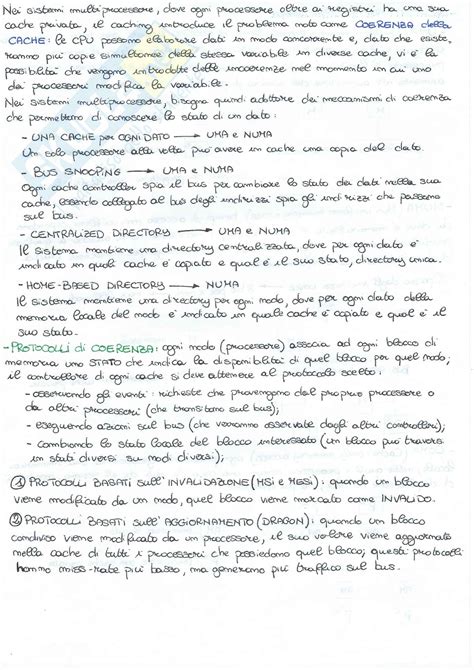 Nei sistemi multiprocessore, dove ogni processore oltre ai registri ha una sua
cache privata, il caching introduce il problema noto come COERENZA della
CACHE: le CPU possono elaborare dati in modo concorrente e, dato che esiste-
ranno più copie simultanee della stessa variabile in diverse cache, vi è la
possibilità che vengano introdotte delle incoerenze nel momento in cui uno
dei processori modifica la variabile.
Nei sistemi multiprocessore, bisogna quindi adottare dei meccanismi di coerenza
che permettano di conoscere lo stato di un dato:
- UNA CACHE per OGNI DATO → UMA e NUMA
Un solo processore alla volta può avere in cache una copia del dato.
- BUS SNOOPING → UMA e NUMA
Ogni cache controller spia il bus per cambiare lo stato dei dati nella sua
cache, essendo collegato al bus degli indirizzi spia gli indirizzi che passano
sul bus.
- CENTRALIZED DIRECTORY → UMA e NUMA
Il sistema mantiene una directory centralizzata, dove per ogni dato è
indicato in quali cache è copiato e qual è il suo stato, directory unica.
- HOME-BASED DIRECTORY → NUMA
Il sistema mantiene una directory per ogni nodo, dove per ogni dato della
memoria locale del nodo è indicato in quale cache è copiato e qual è il
suo stato.
- PROTOCOLLI di COERENZA: ogni nodo (processore) associa ad ogni blocco di
memoria uno STATO che indica la disponibilità di quel blocco per quel nodo;
il controllore di ogni cache si deve attenere al protocollo scelto:
- osservando gli eventi: richieste che provengano dal proprio processore o
da altri processori (che transitano sul bus);
- eseguendo azioni sul bus (che verranno osservate dagli altri controllori);
- cambiando lo stato locale del blocco interessato (un blocco può trovarsi
in stati diversi su nodi diversi);
① PROTOCOLLI BASATI sull'INVALIDAZIONE (MSI e MESI): quando un blocco
viene modificato da un nodo, quel blocco viene marcato come INVALIDO.
② PROTOCOLLI BASATI sull'AGGIORNAMENTO (DRAGON): quando un blocco
condiviso viene modificato da un processore, il suo valore viene aggiornato
nella cache di tutti i processori che possiedono quel blocco; questi protocolli
hanno miss-rate più basso, ma generano più traffico sul bus.